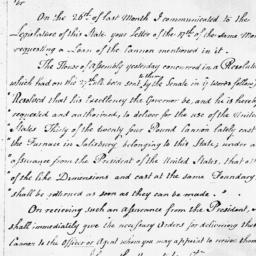 Sir
On the 26th of last Month I communicated to the
Legislature of this State your Letter of the 19th of the same Mon
requesting a Loan of the Cannon mentioned in it.
The House of Assembly yesterday concurred in a Resolution
which had on the 27th ult. been sent to them by the Senate in ye words follow
"Resolved that his Excellency the Governor be, and he is hereby
requested and authorized, to deliver for the use of the United
States Thirty of the twenty four Pound Cannon lately cast
the Furnace in Salisbury belonging to this State, under a
assurance from the President of the United States, that
of the like Dimensions and cast at the same Foundary
"shall be returned as soon as they can be made."
On receiving such an assurance from the President,
shall immediately give the necessary Orders for delivering the
Cannon to the Officer or Agent whom you may appoint to receive them